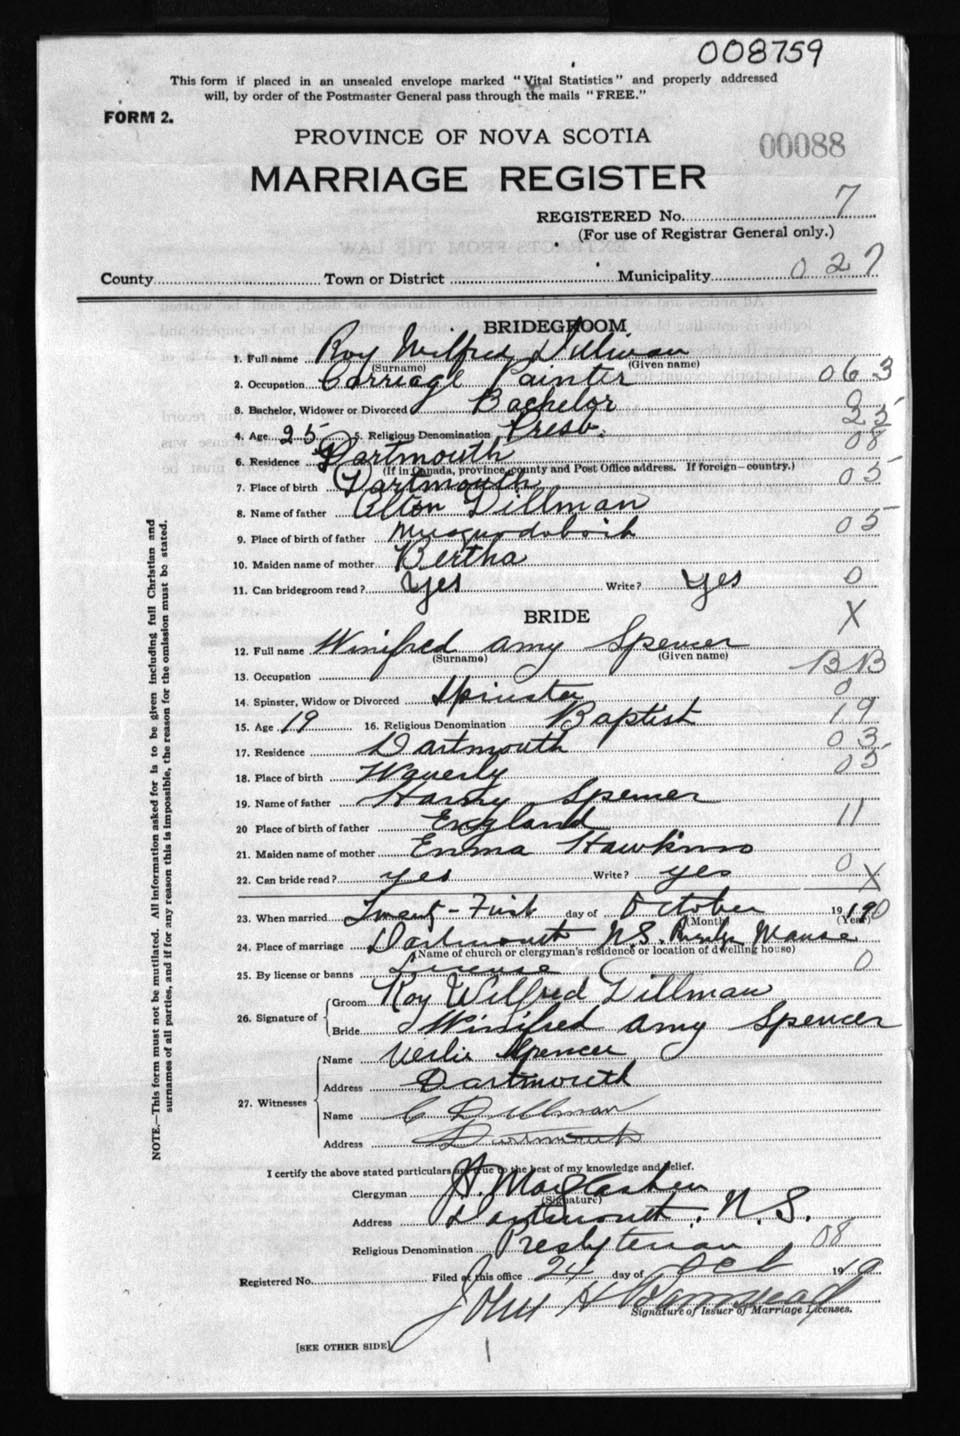 008759
This form if placed in an unsealed envelope marked "Vital Statistics" and properly addressed
will, by order of the Postmaster General pass through the mails "FREE."
FORM 2.
PROVINCE OF NOVA SCOTIA
00088
MARRIAGE REGISTER
REGISTERED No. 7
(For use of Registrar General only.)
County Town or District Municipality 027
BRIDEGROOM
1. Full name Roy Wilfred Dillman
(Surname) (Given name)
2. Occupation Carriage Painter 063
3. Bachelor, Widower or Divorced Bachelor 0
4. Age 25 5. Religious Denomination Presb. 25
08
6. Residence Dartmouth
(If in Canada, province, county and Post Office address. If foreign—country.)
7. Place of birth Dartmouth 05
8. Name of father Alton Dillman
9. Place of birth of father Musquodoboit 05
10. Maiden name of mother Bertha
11. Can bridegroom read? Yes Write? Yes 0
BRIDE X
12. Full name Winifred Amy Spencer
(Surname) (Given name)
13. Occupation BB
14. Spinster, Widow or Divorced Spinster 0
15. Age 19 16. Religious Denomination Baptist 19
17. Residence Dartmouth 03
18. Place of birth Waverly 05
19. Name of father Harry Spencer
20 Place of birth of father England 11
21. Maiden name of mother Emma Hawkins
22. Can bride read? yes Write? yes 0 X
23. When married Twenty-First day of October 19
(Month) (Year)
24. Place of marriage Dartmouth N.S. Manse
(Name of church or clergyman's residence or location of dwelling house)
25. By license or banns License 0
26. Signature of
Groom Roy Wilfred Dillman
Bride Winifred Amy Spencer
27. Witnesses
Name Spencer
Address Dartmouth
Name C Dillman
Address Dartmouth
I certify the above stated particulars are true to the best of my knowledge and belief.
Clergyman
(Signature)
Address Dartmouth, N.S.
Religious Denomination Presbyterian 08
Registered No. Filed at this office 24 day of Oct 1919
John H
Signature of Issuer of Marriage Licenses.
[SEE OTHER SIDE]
NOTE.—This form must not be mutilated. All information asked for is to be given including full Christian and
surnames of all parties, and if for any reason this is impossible, the reason for the omission must be stated.